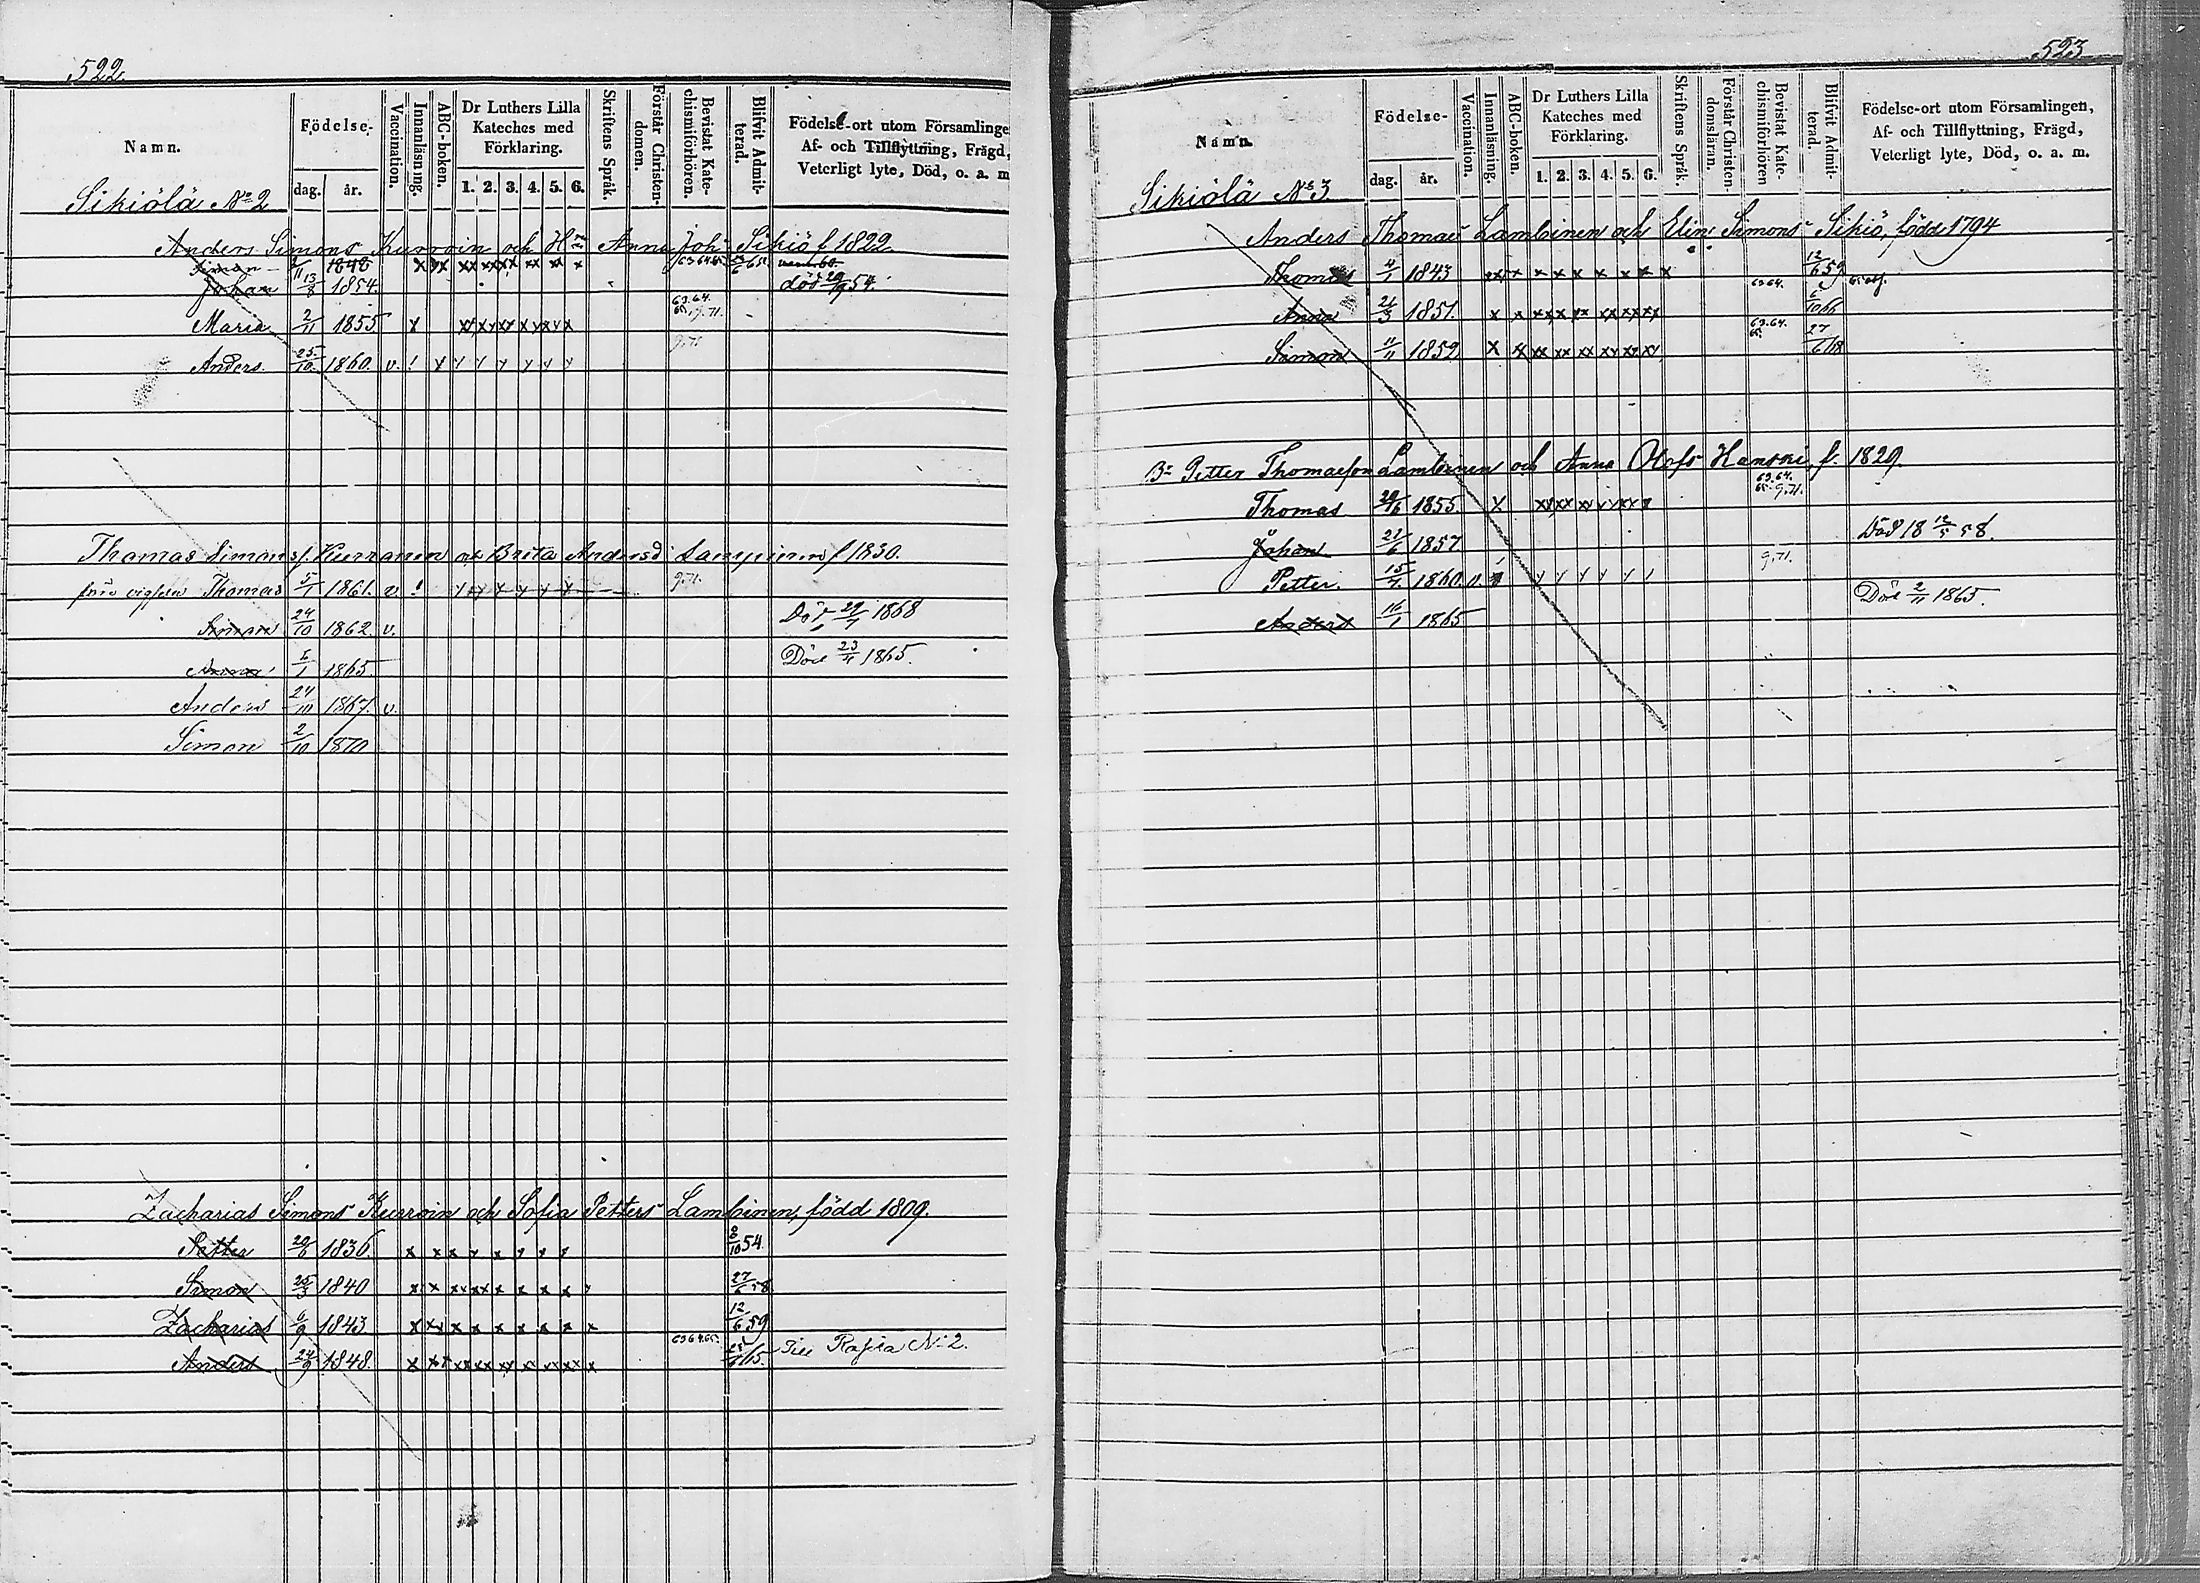 522
Namn.
Födelse-
dag. år.
Vaccination.
Innanläsning.
ABC-boken.
Dr Luthers Lilla
Kateches med
Förklaring.
1. 2. 3. 4. 5. 6.
Skriftens Språk.
Förstår Christen-
domen.
Bevistat Kate-
chismiförhören.
Blifvit Admit-
terad.
Födelse-ort utom Församlinge
Af- och Tillflyttning, Frägd,
Veterligt lyte, Död, o. a. m
Sikiölä No 2
Anders Simons Kurroin och Hu Anna Joh. Sikiö f 1822
Simon 2/11 1848 x xx xx xx xx x xx x 63 64 65
Johan 13/8 1854. död 29/9 54.
Maria 2/11 1855 x xx xx xx xx xx x 63. 64. 65. 9.71.
Anders. 25/10 1860. v. ! y y y y y y y 9.71
Thomas Simons f. Kurranen o Brita Andersd Lampinen f 1830.
före vigseln Thomas 5/1 1861. v ! 9.71.
Simon 24/10 1862. v. Död 29/7 1868
6/1 1865. Död 23/11 1865.
Anders 24/10 1867. v.
Simon 2/10 1870
Zacharias Simons Kurroin och Sofia Petters Lambinen, född 1809.
Petter 20/6 1836. x x x x x x x x 8/10 54.
Simon 25/3 1840 x x xx xx x x x x 27/6 58
Zacharias 6/9 1843. x xx x x x x x x x 12/6 59
Anders 24/9 1848. x xx xx xx xx xx xx x 63 64 65. Till Rafila No 2.
523
Namn.
Födelse-
dag. år.
Vaccination.
Innanläsning.
ABC-boken.
Dr Luthers Lilla
Kateches med
Förklaring.
1. 2. 3. 4. 5. 6.
Skriftens Språk.
Förstår Christen-
domsläran.
Bevistat Kate-
chismiförhören
Blifvit Admit-
terad.
Födelse-ort utom Församlingen,
Af- och Tillflyttning, Frägd,
Veterligt lyte, Död, o. a. m.
Sikiölä No 3.
Anders Thomae Lambinen och Elin Simons Sikiö, född 1794
Thomas 4/1 1843 xx x x x x x x x x 63 64. 12/6 59
Anna 21/3 1851. x x xx xx xx xx xx 6/10 66
Simon 11/11 1852 x x xx xx xx xx xx xy 63. 64. 65. 27/6 68
Br Petter Thomaeson Lambinen och Anna Olofs Hanski, f. 1829.
Thomas 29/6 1855. x xx xx xx xx xx x 63. 64. 65. 9.71.
Johan 21/6 1857. Död 18 12/5 58.
Petter 15/7 1860. v. 9.71.
Anders 16/1 1865 Död 2/11 1865.